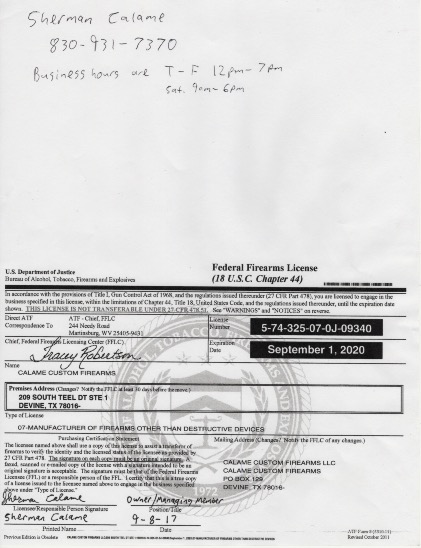 Sherman Calame
830-931-7370
Business hours are T-F 12pm-7pm
Sat. 9am-6pm
U.S. Department of Justice
Bureau of Alcohol, Tobacco, Firearms and Explosives
Federal Firearms License
(18 U.S.C. Chapter 44)
In accordance with the provisions of Title I, Gun Control Act of 1968, and the regulations issued thereunder (27 CFR Part 478), you are licensed to engage in the
business specified in this license, within the limitations of Chapter 44, Title 18, United States Code, and the regulations issued thereunder, until the expiration date
shown. THIS LICENSE IS NOT TRANSFERABLE UNDER 27 CFR 478.51. See "WARNINGS" and "NOTICES" on reverse.
Direct ATF
Correspondence To
ATF - Chief, FFLC
244 Needy Road
Martinsburg, WV 25405-9431
License
Number
5-74-325-07-0J-09340
Chief, Federal Firearms Licensing Center (FFLC)
Tracey Robertson
Expiration
Date
September 1, 2020
Name
CALAME CUSTOM FIREARMS
Premises Address (Changes? Notify the FFLC at least 30 days before the move.)
209 SOUTH TEEL DT STE 1
DEVINE, TX 78016-
Type of License
07-MANUFACTURER OF FIREARMS OTHER THAN DESTRUCTIVE DEVICES
Purchasing Certification Statement
The licensee named above shall use a copy of this license to assist a transferor of
firearms to verify the identity and the licensed status of the licensee as provided by
27 CFR Part 478. The signature on each copy must be an original signature. A
faxed, scanned or e-mailed copy of the license with a signature intended to be an
original signature is acceptable. The signature must be that of the Federal Firearms
Licensee (FFL) or a responsible person of the FFL. I certify that this is a true copy
of a license issued to the licensee named above to engage in the business specified
above under "Type of License."
Mailing Address (Changes? Notify the FFLC of any changes.)
CALAME CUSTOM FIREARMS LLC
CALAME CUSTOM FIREARMS
PO BOX 129
DEVINE, TX 78016-
Sherman Calame
Owner/Managing Member
Licensee/Responsible Person Signature
Position/Title
Sherman Calame
9-8-17
Printed Name
Date
Previous Edition is Obsolete
ATF Form 8 (5310.11)
Revised October 2011